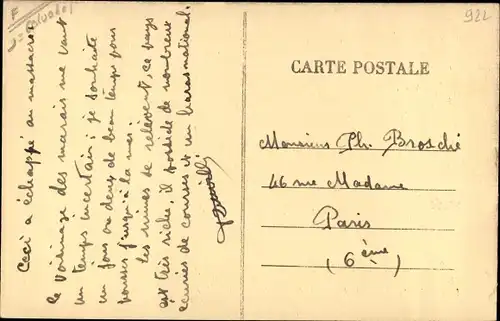 Ceci a échappé au massacre.
Le voisinage des marais me vaut
un temps incertain ; je souhaite
un jour ou deux de beau temps pour
pousser jusqu'à la mer.
Les ruines se relèvent, ce pays
est très riche, il possède de nombreuses
écuries de courses et un haras national.
CARTE POSTALE
Monsieur Ph. Brosché
46 rue Madame
Paris
(6ème)
922